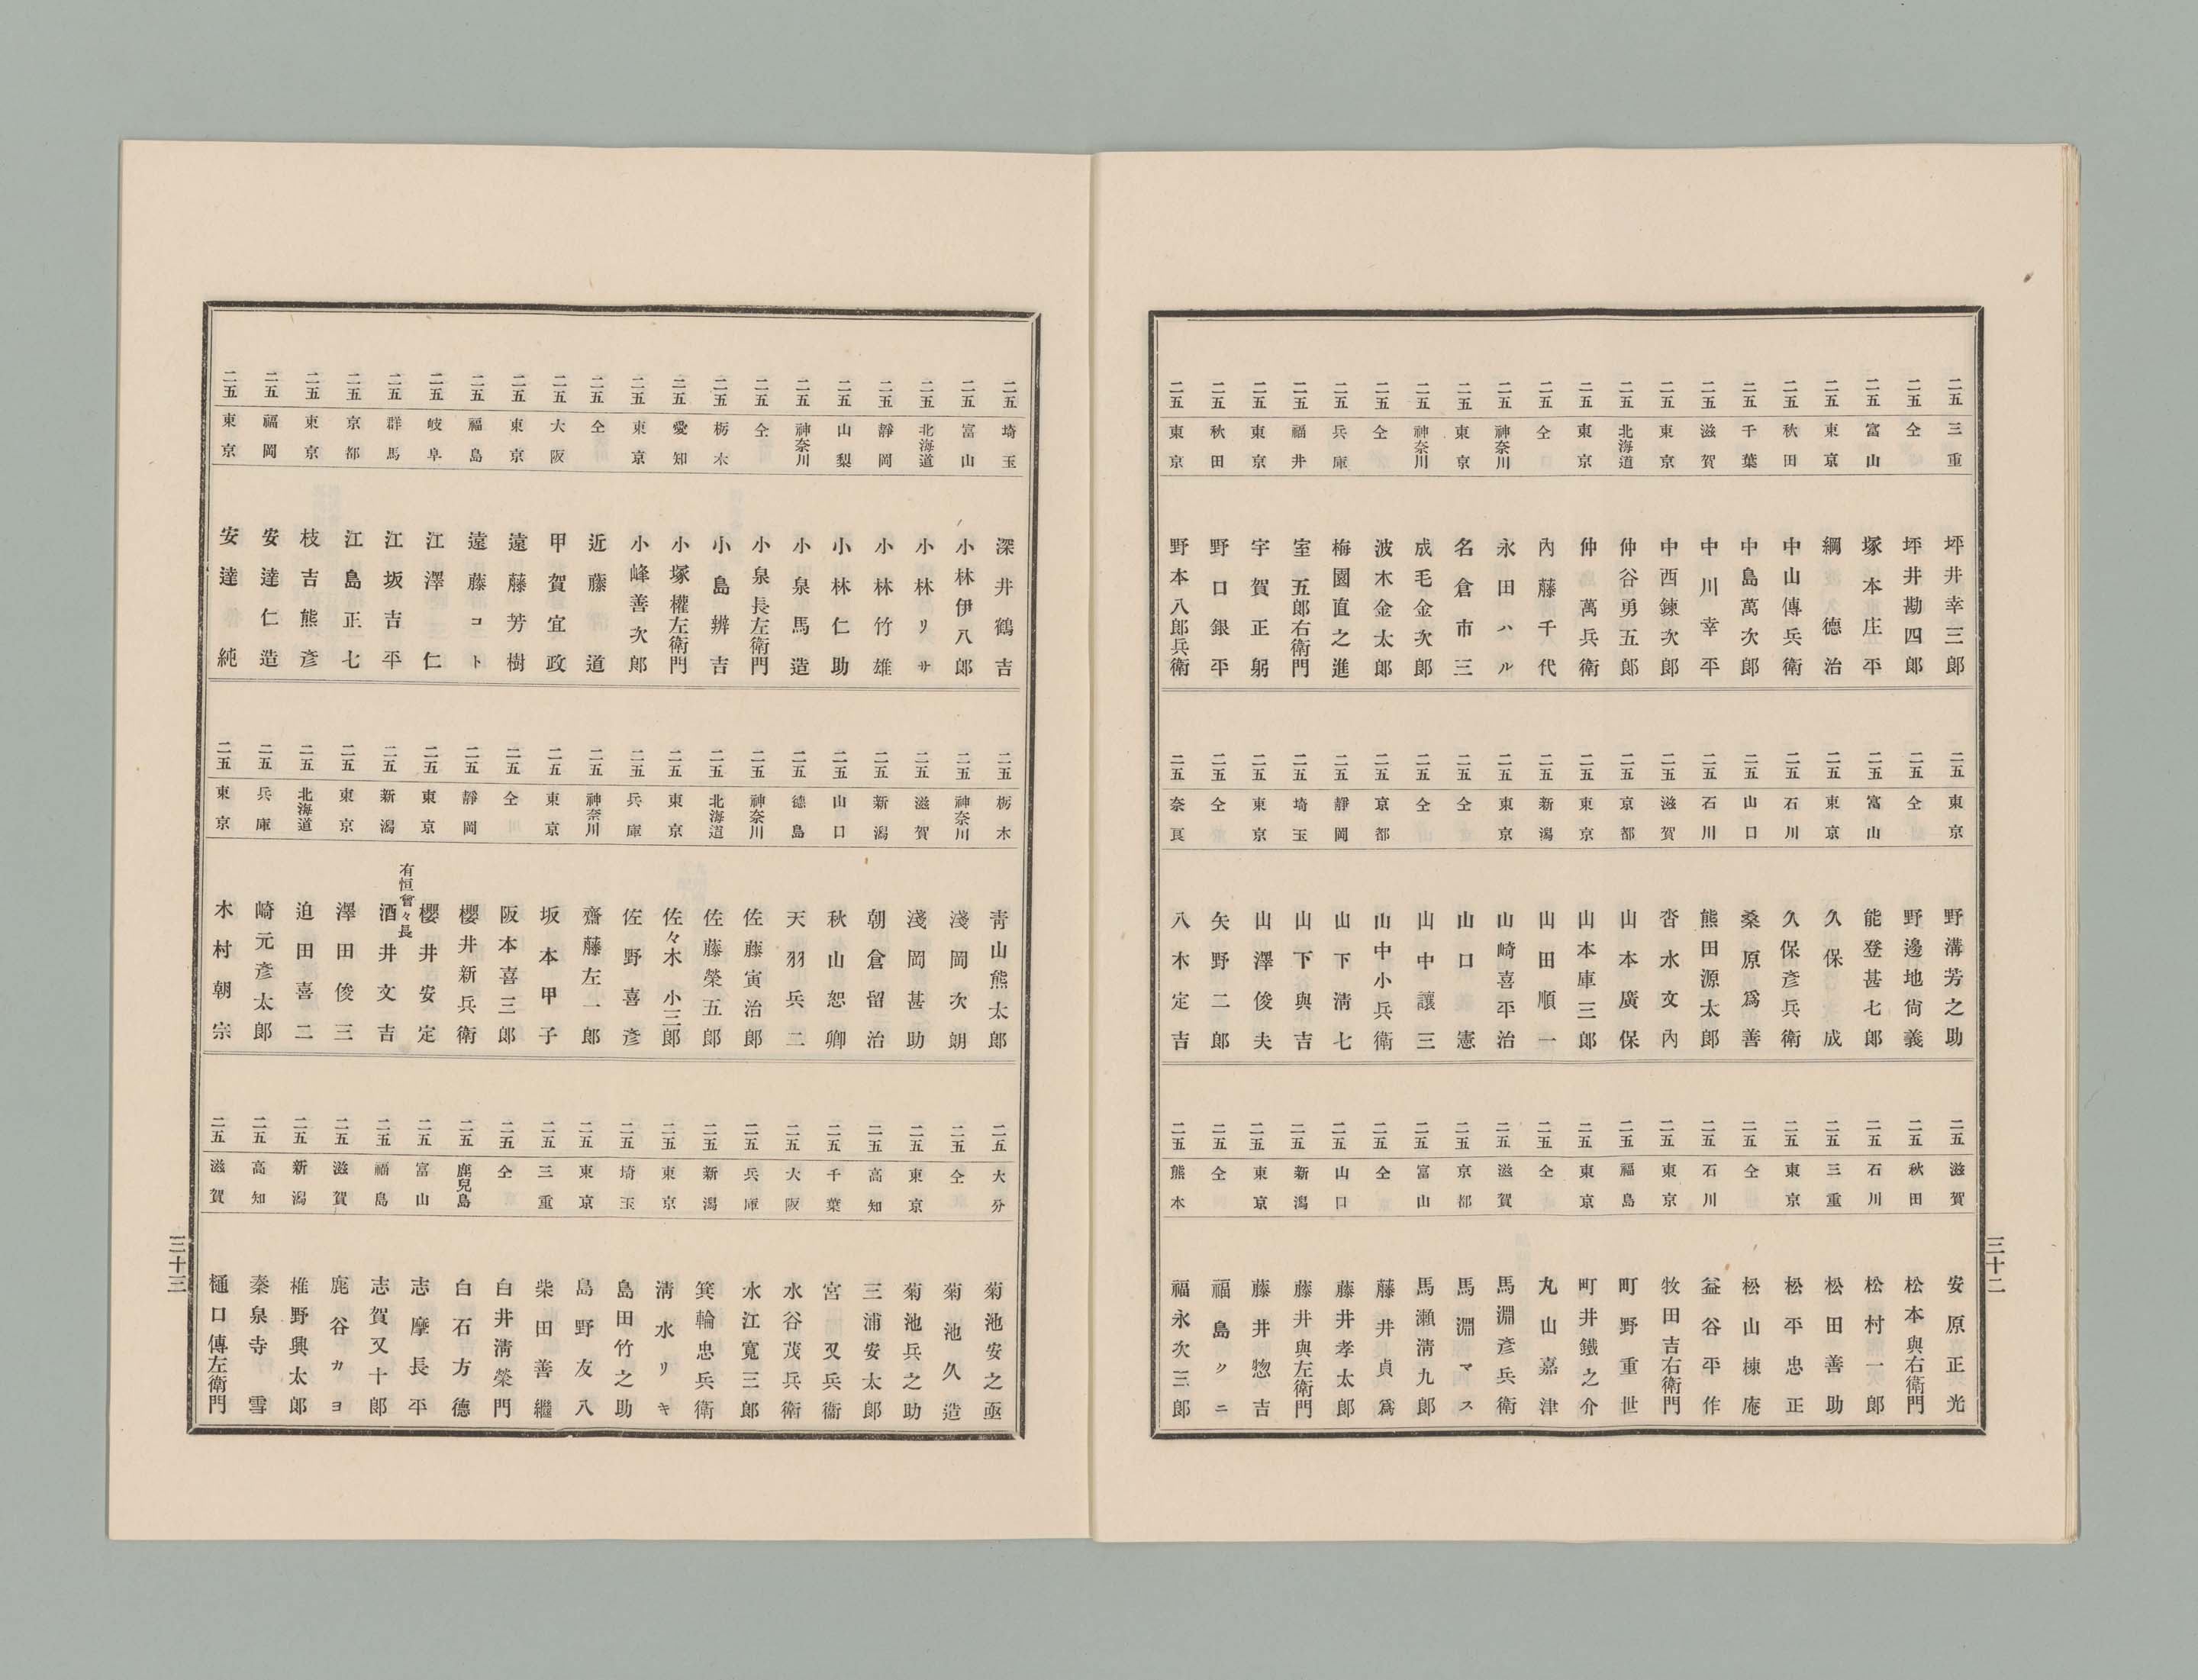 二五 三重 坪井幸三郎
二五 仝 坪井勘四郎
二五 富山 塚本庄平
二五 東京 綱德治
二五 秋田 中山傳兵衛
二五 千葉 中島萬次郎
二五 滋賀 中川幸平
二五 東京 中西鍊次郎
二五 北海道 仲谷勇五郎
二五 東京 仲萬兵衛
二五 仝 內藤千代
二五 神奈川 永田ハル
二五 東京 名倉市三
二五 神奈川 成毛金次郎
二五 仝 波木金太郎
二五 兵庫 梅園直之進
二五 福井 室五郎右衛門
二五 東京 宇賀正躬
二五 秋田 野口銀平
二五 東京 野本八郎兵衛
二五 東京 野溝芳之助
二五 仝 野邊地尙義
二五 富山 能登甚七郎
二五 東京 久保成
二五 石川 久保彥兵衛
二五 山口 桑原爲善
二五 石川 熊田源太郎
二五 滋賀 沓水文內
二五 京都 山本廣保
二五 東京 山本庫三郎
二五 新潟 山田順一
二五 東京 山崎喜平治
二五 仝 山口憲
二五 仝 山中讓三
二五 京都 山中小兵衛
二五 靜岡 山下淸七
二五 埼玉 山下與吉
二五 東京 山澤俊夫
二五 仝 矢野二郎
二五 奈良 八木定吉
二五 滋賀 安原正光
二五 秋田 松本與右衛門
二五 石川 松村一郎
二五 三重 松田善助
二五 東京 松平忠正
二五 仝 松山棟庵
二五 石川 益谷平作
二五 東京 牧田吉右衛門
二五 福島 町野重世
二五 東京 町井鐵之介
二五 仝 丸山嘉津
二五 滋賀 馬淵彥兵衛
二五 京都 馬淵マス
二五 富山 馬瀨淸九郎
二五 仝 藤井貞爲
二五 山口 藤井孝太郎
二五 新潟 藤井與左衛門
二五 東京 藤井惣吉
二五 仝 福島クニ
二五 熊本 福永次三郎
三十二
二五 埼玉 深井鶴吉
二五 富山 小林伊八郎
二五 北海道 小林リサ
二五 靜岡 小林竹雄
二五 山梨 小林仁助
二五 神奈川 小泉馬造
二五 仝 小泉長左衛門
二五 栃木 小島辨吉
二五 愛知 小塚權左衛門
二五 東京 小峰善次郎
二五 仝 近藤道
二五 大阪 甲賀宜政
二五 東京 遠藤芳樹
二五 福島 遠藤コト
二五 岐阜 江澤仁
二五 群馬 江坂吉平
二五 京都 江島正七
二五 東京 枝吉熊彥
二五 福岡 安達仁造
二五 東京 安達純
二五 栃木 靑山熊太郎
二五 神奈川 淺岡次朗
二五 滋賀 淺岡甚助
二五 新潟 朝倉留治
二五 山口 秋山恕卿
二五 德島 天羽兵二
二五 神奈川 佐藤寅治郎
二五 北海道 佐藤榮五郎
二五 東京 佐々木小三郎
二五 兵庫 佐野喜彥
二五 神奈川 齋藤左一郎
二五 東京 坂本甲子
二五 仝 阪本喜三郎
二五 靜岡 櫻井新兵衛
二五 東京 櫻井安定
二五 新潟 有恒會々長 酒井文吉
二五 東京 澤田俊三
二五 北海道 迫田喜二
二五 兵庫 崎元彥太郎
二五 東京 木村朝宗
二五 大分 菊池安之亟
二五 仝 菊池久造
二五 東京 菊池兵之助
二五 高知 三浦安太郎
二五 千葉 宮又兵衞
二五 大阪 水谷茂兵衛
二五 兵庫 水江寬三郎
二五 新潟 箕輪忠兵衛
二五 東京 淸水リキ
二五 埼玉 島田竹之助
二五 東京 島野友八
二五 三重 柴田善繼
二五 仝 白井淸榮門
二五 鹿兒島 白石方德
二五 富山 志摩長平
二五 福島 志賀又十郎
二五 滋賀 鹿谷カヨ
二五 新潟 椎野興太郎
二五 高知 秦泉寺雪
二五 滋賀 樋口傳左衛門
三十三